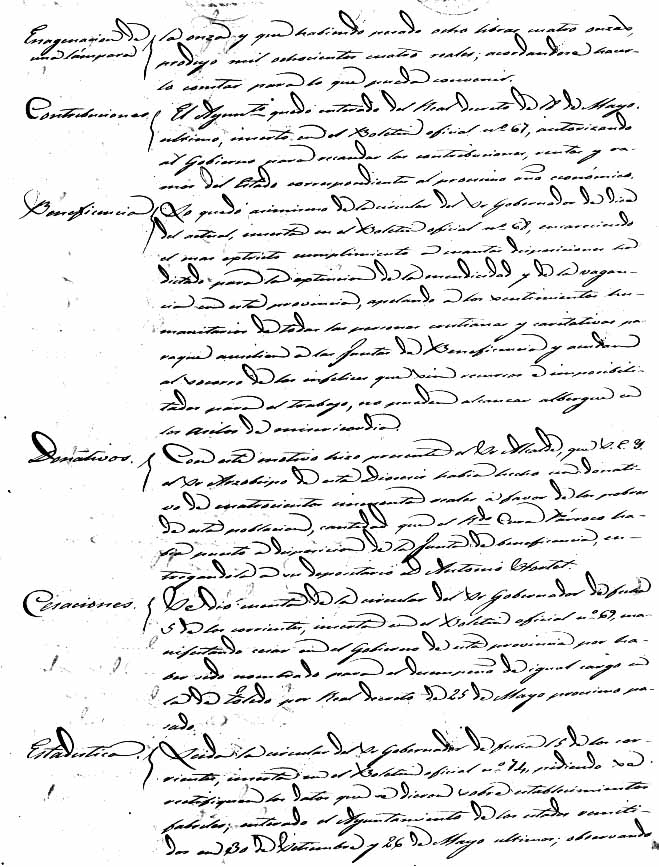 Enagenacion de una lámpara
la onza y que habiendo pesado ocho libras cuatro onzas,
produjo mil ochocientos cuatro reales; acordandose hacer-
lo constar para lo que pueda convenir.
Contribuciones
El Ayuntto quedó enterado del Real decreto de de Mayo
ultimo, inserto en el Boletin oficial nº 67, autorizando
al Gobierno para recaudar las contribuciones, rentas y ra-
mos del Estado correspondiente al procsimo año económico.
Beneficencia
Lo quedó asimismo de la circular del Sr Gobernador de
del actual, inserta en el Boletin oficial nº encareciendo
el mas esacto cumplimiento á cuantas disposiciones ha
dictado para la estincion de la mendicidad y de la vagan-
cia en esta provincia, apelando á los sentimientos hu-
manitarios de todas las personas cristianas y caritativas pa-
raque ausilien á las Juntas de Beneficencia y acudan
al socorro de los infelices que sin recursos é imposibili-
tados para el trabajo, no puedan alcanzar albergue en
los Asilos de misericordia.
Donativos.
Con este motivo hizo presente el Sr Alcalde, que S.E.Y.
el Sr Arzobispo de esta Diocesis habia hecho un donati-
vo de cuatrocientos cincuenta reales á favor de los pobres
de esta poblacion, cantidad que el Rdo Cura Párroco ha-
bia puesto á disposicion de la Junta de beneficencia, en-
tregandola á su depositario D. Antonio
Cesaciones.
Se dió cuenta de la circular del Sr Gobernador de fecha
5 de los corrientes, inserta en el Boletin oficial nº 69, ma-
nifestando cesar en el Gobierno de esta provincia por ha-
ber sido nombrado para el desempeño de igual cargo en
la de Toledo por Real decreto de 25 de Mayo procsimo pa-
sado.
Estadistica.
Leida la circular del Sr Gobernador de fecha 15 de los cor-
rientes, inserta en el Boletin oficial nº 74, pidiendo se
rectifiquen los datos que se dieron sobre establecimientos
fabriles; enterado el Ayuntamiento de los estados remiti-
dos en 30 de Setiembre y 26 de Mayo ultimos; observando